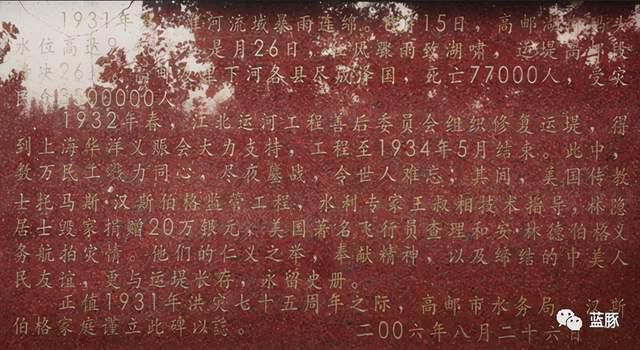 1931年 淮河流域暴雨连绵。 15日，高邮
水位高达9 是月26日，狂风骤雨致湖啸，运堤高邮段
溃决26 里下河各县尽成泽国，死亡77000人，受灾
民 3500000人
1932年春，江北运河工程善后委员会组织修复运堤，得
到上海华洋义赈会大力支持，工程至1934年5月结束。此中，
数万民工戮力同心，尽夜鏖战，令世人难忘；其间，美国传教
士托马斯·汉斯伯格监管工程，水利专家王叔相技术指导，林隐
居士毁家捐赠20万银元，美国著名飞行员查理和安·林德伯格义
务航拍灾情。他们的仁义之举，奉献精神，以及缔结的中美人
民友谊，更与运堤长存，永留史册。
正值1931年洪灾七十五周年之际，高邮市水务局、汉斯
伯格家庭谨立此碑以誌。 二00六年八月二十六日
蓝豚